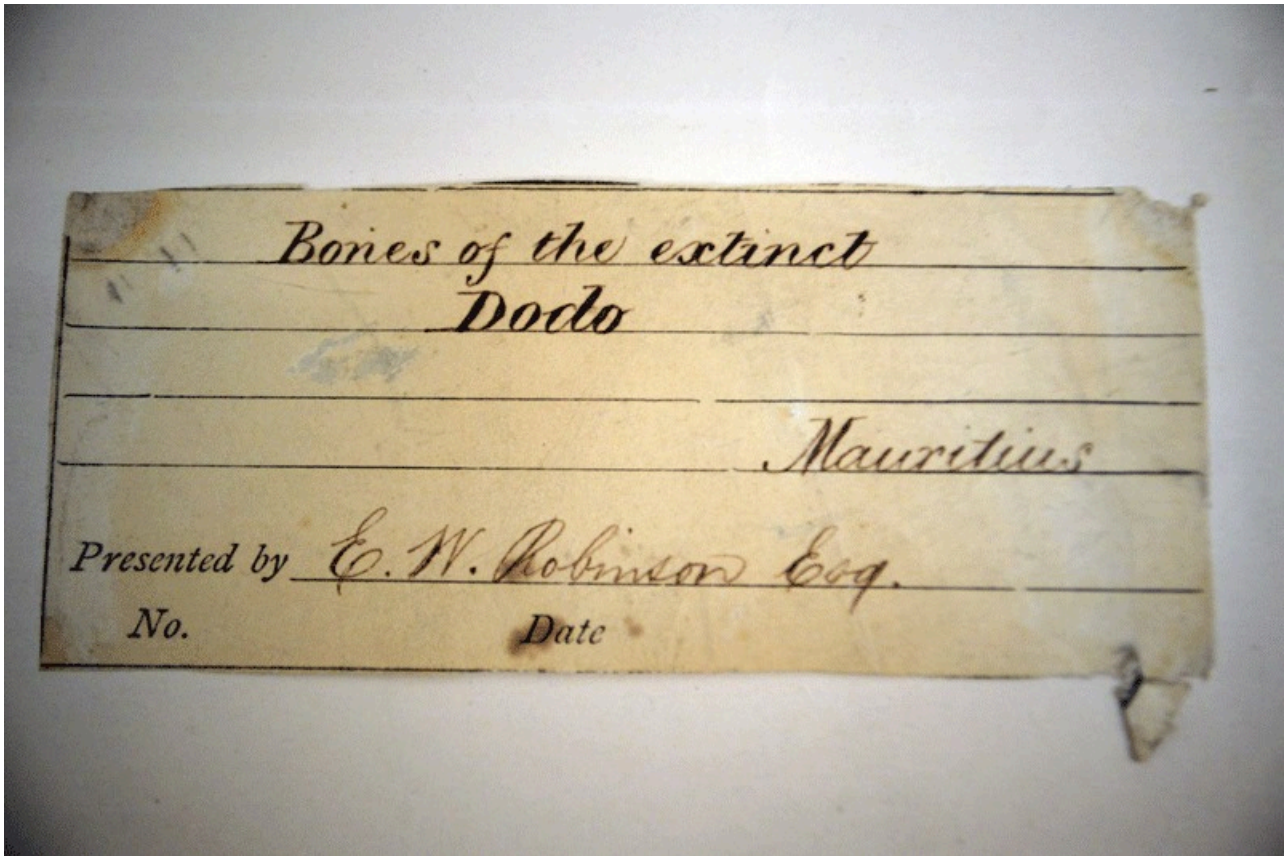 Bones of the extinct
Dodo
Mauritius
Presented by E. W. Robinson Esq.
No. Date